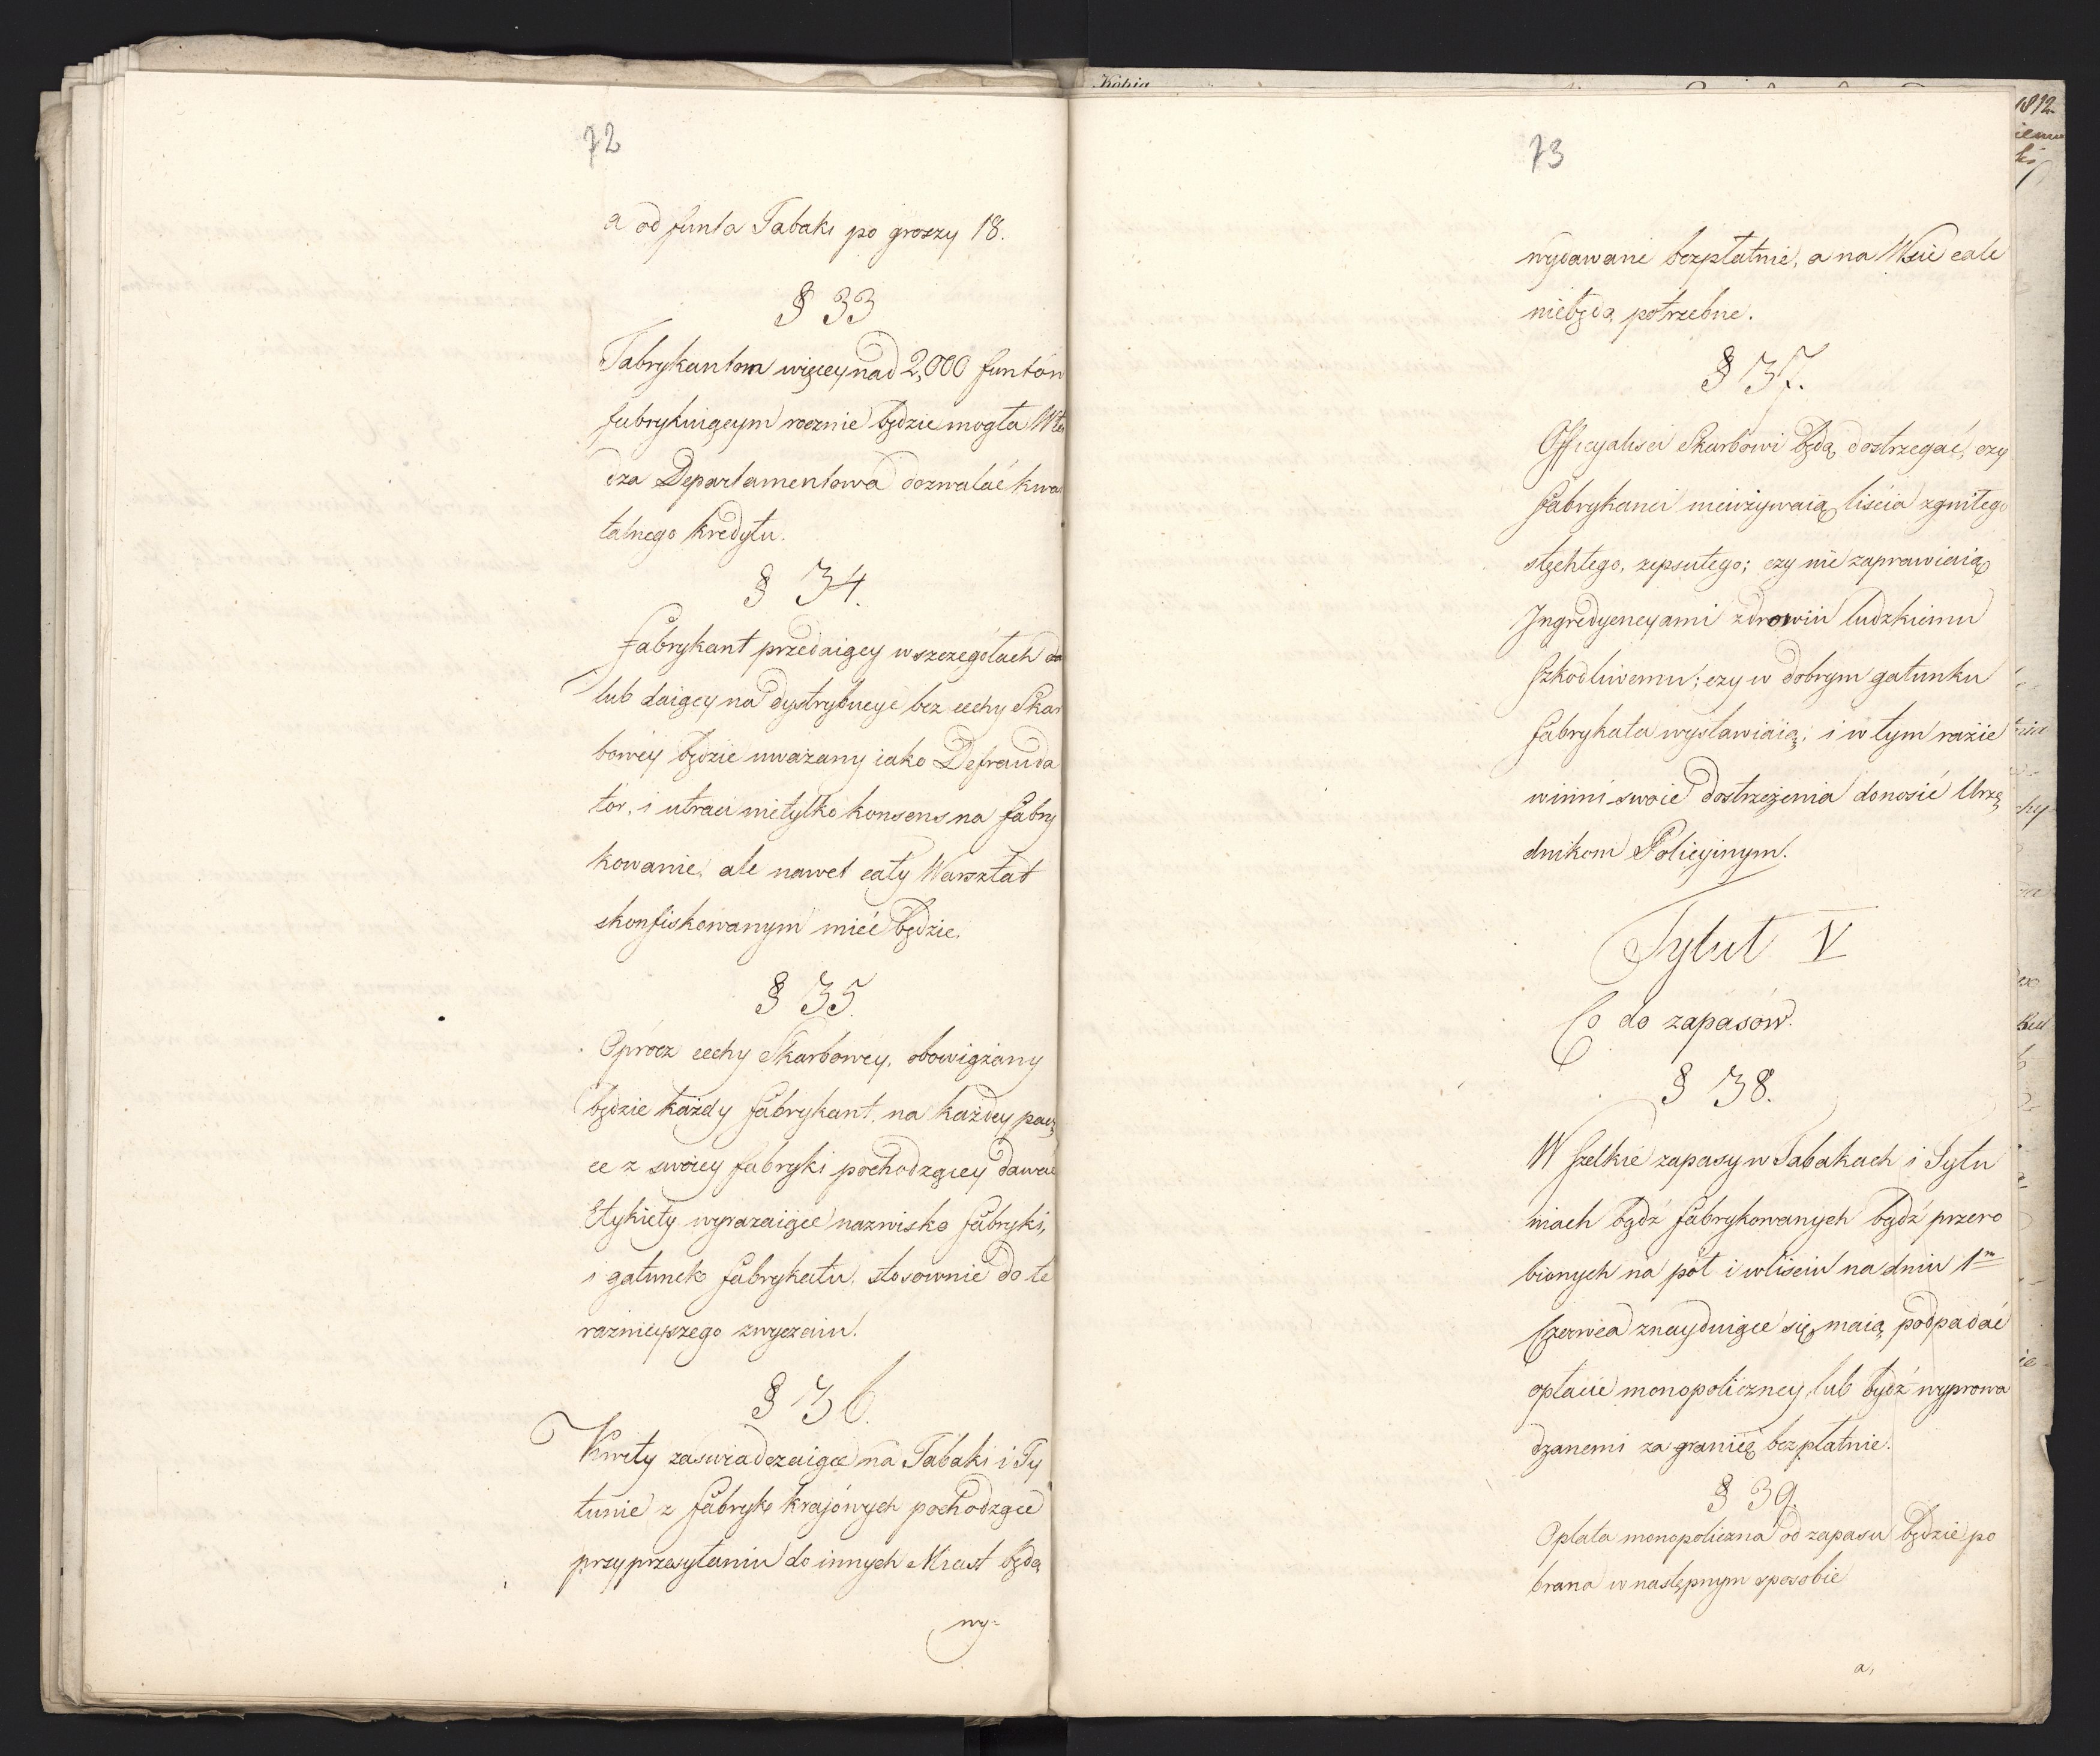 72
a od funta Tabaki po groszy 18.
§ 33
Fabrykantom więcey nad 2,000 funtów
fabrykuiącym rocznie będzie mogła Wła
dza Departamentowa dozwalać kwar
talnego kredytu.
§ 34.
Fabrykant przedaiący w szczegółach
lub daiący na dystrybucye bez cechy Skar
bowéy będzie uważany iako Defrauda
tor, i utraci nietylko konsens na fabry
kowanie, ale nawet cały Warsztat
skonfiskowanym mieć będzie.
§ 35.
Oprócz cechy Skarbowey, obowiązany
będzie każdy fabrykant, na każdey pacz
ce z swoiey fabryki pochodzącey dawać
Etykiety wyrazaiące nazwisko fabryki,
i gatunek fabrykatu, stosownie do te
raznieyszego zwyczaiu.
§ 36.
Kwity zaswiadczaiące na Tabaki i Ty
tunie z fabryk krajowych pochodzące
przy przesyłaniu do innych Miast będą
wy-
Kopia
73
wydawane bezpłatnie, a na Wsie cale
niebędą potrzebne.
§ 37.
Officyaliści Skarbowi będą dostrzegać, czy
fabrykanci nieużywaią liścia zgniłego
stęchłego, zepsutego; czy nie zaprawiaią
Ingredyencyami zdrowiu ludzkiemu
szkodliwemu; czy w dobrym gatunku
fabrykata wystawiaią; i w tym razie
winni swoie dostrzeżenia donosić Urzę
dnikom Policyinym.
Tytuł V
Co do zapasów.
§ 38.
Wszelkie zapasy w Tabakach i Tytu
niach bądź fabrykowanych bądź przero
bionych na pół i w liściu na dniu 1m
Czerwca znayduiące się, maią podpadać
opłacie monopoliczney, lub bydź wyprowa
dzanemi za granicę bezpłatnie.
§ 39.
Opłata monopoliczna od zapasu będzie po
brana w następnym sposobie
a,
1812